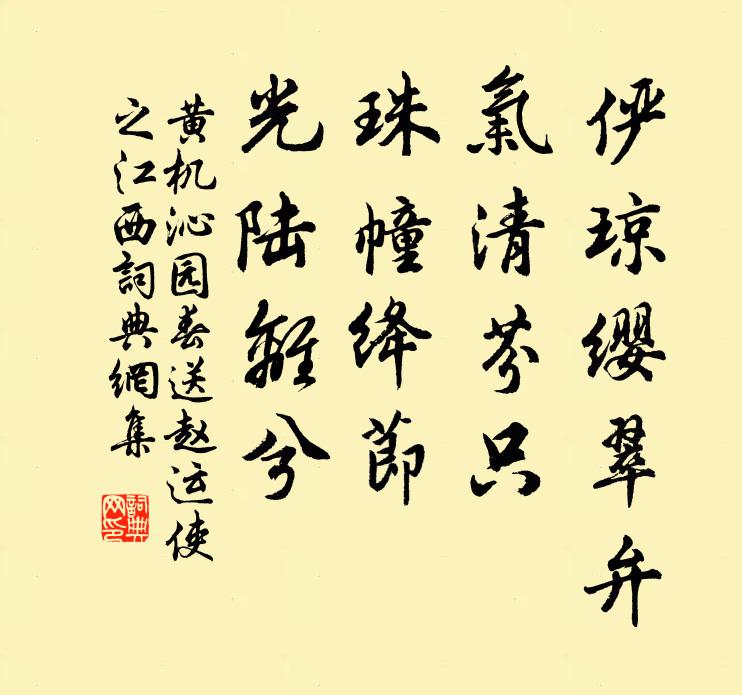 俨琼缨翠弁
氣清芬只
珠幢绛節
光陆離兮
黄机沁园春送赵运使
之江西詞典網集
詞典
网印